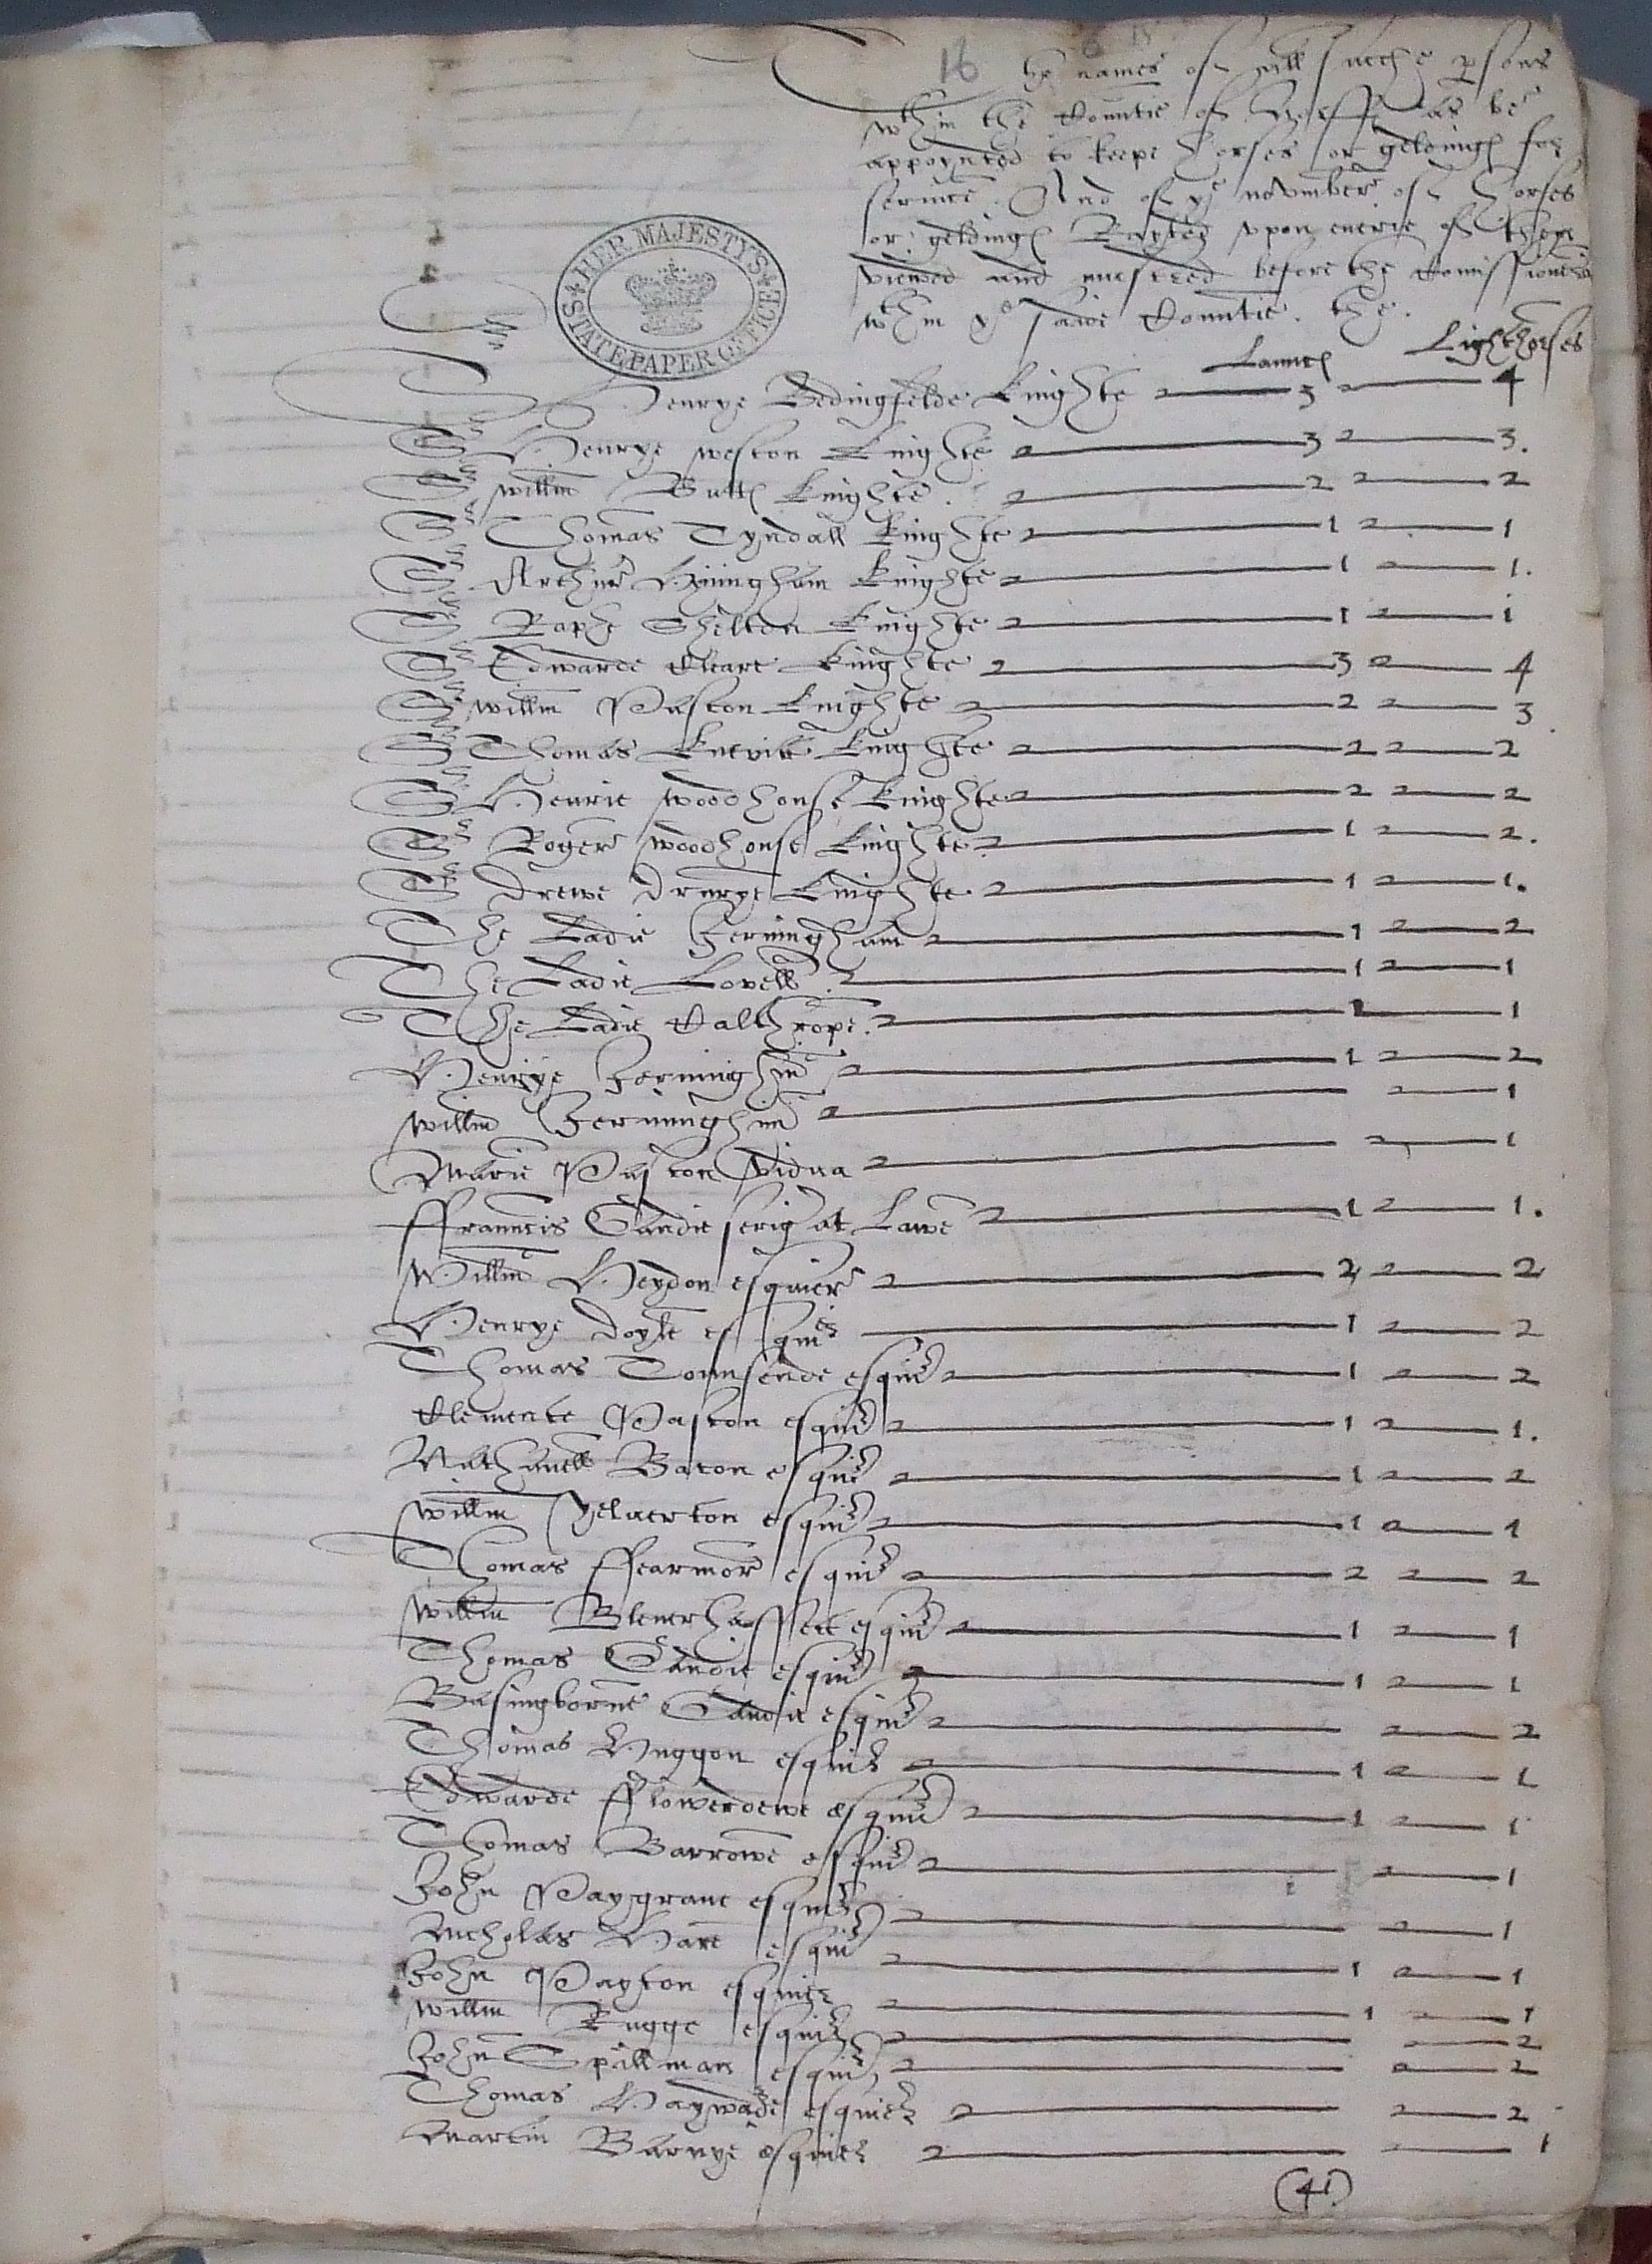 16 6 15
The names of all suche psons
wthin the Countie of Norff as be
appoynted to keepe horses or geldings for
service. And of ye novmber of horses
or geldings Rayted vpon euerie of them
viewed and mustred before the Comissioners
wthin ye saide Countie. the.
HER MAJESTY'S STATE PAPER OFFICE
Launcs Lighthorses
Sr Henrye Bedingfelde Knighte 3 4
Sr Henrye Weston Knighte 3 3.
Sr Willm Butts Knighte. 2 2
Sr Thomas Tyndall Knighte 1 1
Sr Arthur Heningham Knighte 1 1.
Sr Raphe Shelton Knighte 1 1
Sr Edwarde Cleare Knighte 3 4
Sr Willm Paston Knighte 2 3
Sr Thomas Knevitt Knighte 2 2
Sr Henrie Woodhouse Knighte 2 2
Sr Roger Woodhouse Knighte 1 2.
Sr Drewe Drurye Knighte 1 1.
The Ladie Jerningham 1 2
The Ladie Lovell. 1 1
The Ladie Calthrope. 1 1
Henrye Jerninghm 1 2
Willm Jerninghm 1
Marie Paston Vidua 1
Ffrauncis Gawdie serig at Lawe 1 1.
Willm Heydon esquier 2 2
Henrye Doyle esquier 1 2
Thomas Tounsende esquier 1 2
Clemente Paston esquier 1 1.
Nathanell Bacon esquier 1 2
Willm Yelverton esquier 1 1
Thomas Ffearmor esquier 2 2
Willm Blenerhassett esquier 1 1
Thomas Gawdie esquier 1 1
Basingborne Gawdie esquier 2
Thomas Huggon esquier 1 1
Edwarde Fflowerdewe esquier 1 1
Thomas Barrowe esquier 1
John Paygrave esquier 1
Nicholas Hare esquier 1 1
John Payton esquier 1 1
Willm Rugge esquier 2
John Spillman esquier 2
Thomas Haywarde esquier 2
Martin Barnye esquier 1
(41)